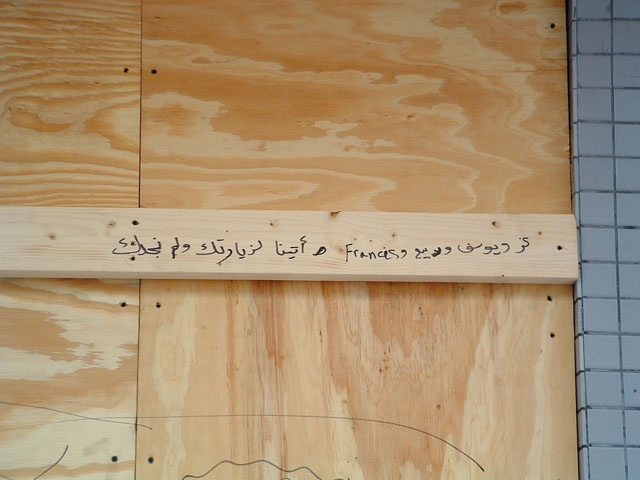 ويوسف وربيع و Francis أتينا لزيارتك ولم نجدك